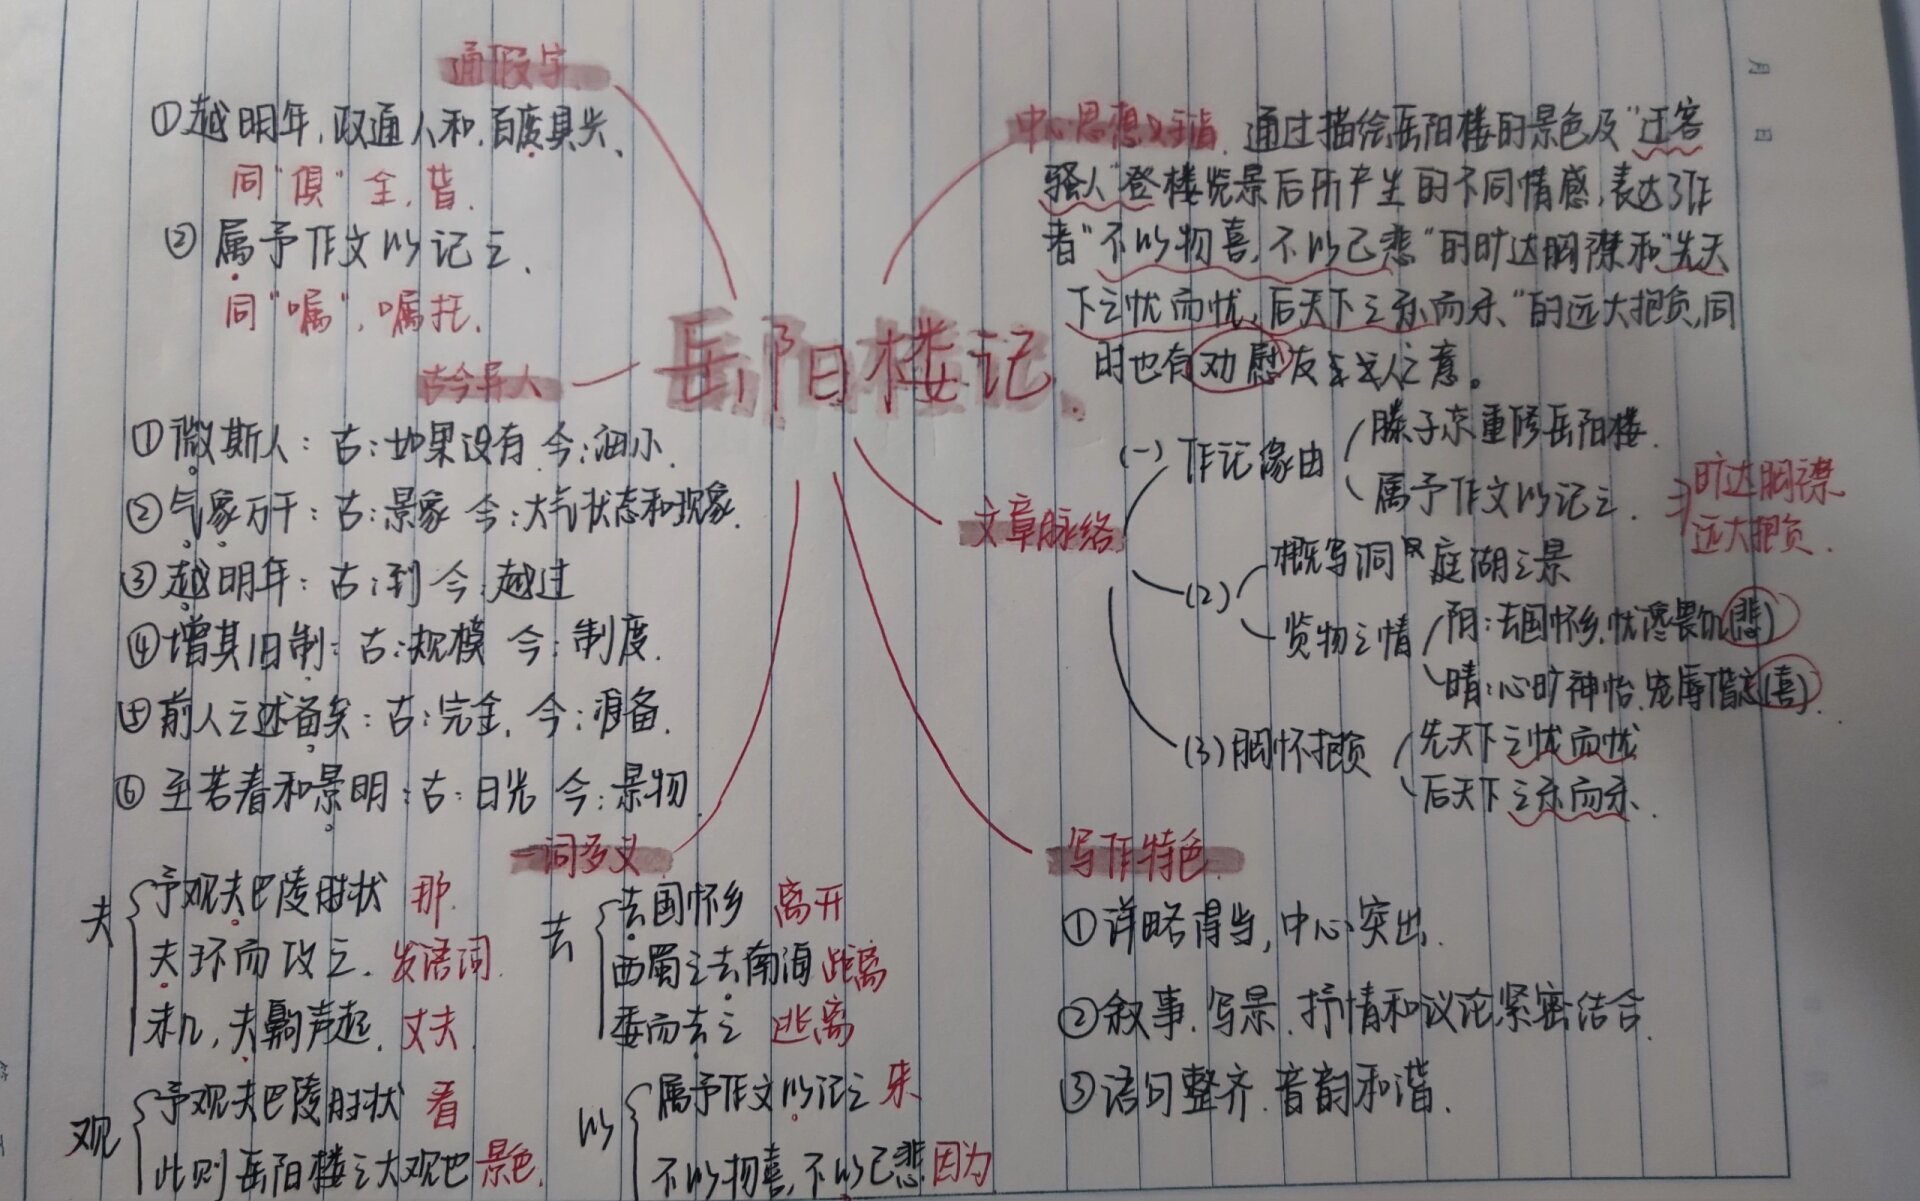 岳阳楼记
通假字
①越明年,政通人和,百废具兴、
同"俱"全,皆.
②属予作文以记之、
同"嘱",嘱托.
古今异义
①微斯人:古:如果没有 今:细小.
②气象万千:古:景象 今:大气状态和现象.
③越明年:古:到 今:越过
④增其旧制:古:规模 今:制度.
⑤前人之述备矣:古:完全, 今:准备.
⑥至若春和景明:古:日光 今:景物
一词多义
夫
予观夫巴陵胜状 那.
夫环而攻之. 发语词.
未几,夫齁声起. 丈夫.
观
予观夫巴陵胜状 看
此则岳阳楼之大观也 景色.
去
去国怀乡 离开
西蜀之去南海 距离
委而去之 逃离
以
属予作文以记之 来
不以物喜,不以己悲 因为
中心思想 通过描绘岳阳楼的景色及"迁客
骚人"登楼览景后所产生的不同情感,表达了作
者"不以物喜,不以己悲"的旷达胸襟和"先天
下之忧而忧,后天下之乐而乐"的远大抱负,同
时也有劝慰友之意。
文章脉络
(一)作记缘由
滕子京重修岳阳楼.
属予作文以记之.
旷达胸襟
远大抱负.
(2)
概写洞庭湖之景
览物之情
阴:去国怀乡,忧谗畏讥(悲)
晴:心旷神怡,宠辱偕忘(喜).
(3)胸怀抱负
先天下之忧而忧
后天下之乐而乐.
写作特色.
①详略得当,中心突出.
②叙事.写景.抒情和议论紧密结合.
③语句整齐.音韵和谐.
月
日